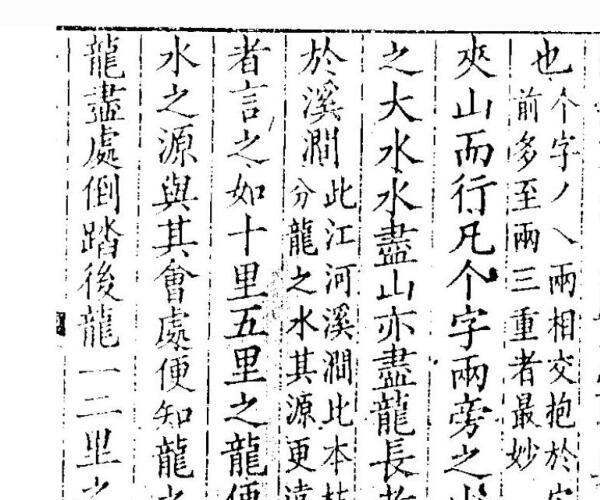 也
个字丿乀兩相交抱於
前多至兩三重者最妙
夾山而行凡个字兩旁之
之大水水盡山亦盡龍長
於溪澗
此江河溪澗此本
分龍之水其源更
者言之如十里五里之龍便
水之源與其會處便知龍
龍盡處倒踏後龍一二里